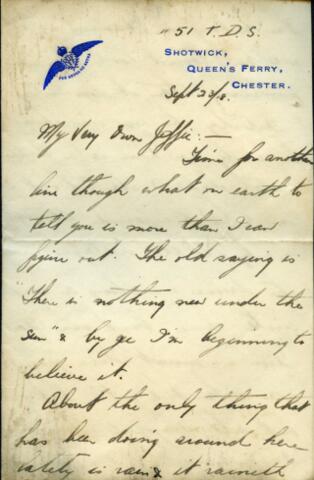 "51 T.D.S.
SHOTWICK,
QUEEN'S FERRY,
CHESTER.
Sept 23/8.
My Very Own Jeffie:—
Time for another
line though what on earth to
tell you is more than I can
figure out. The old saying is
"There is nothing new under the
sun" & by gee I'm beginning to
believe it.
About the only thing that
has been doing around here
lately is rain & it raineth